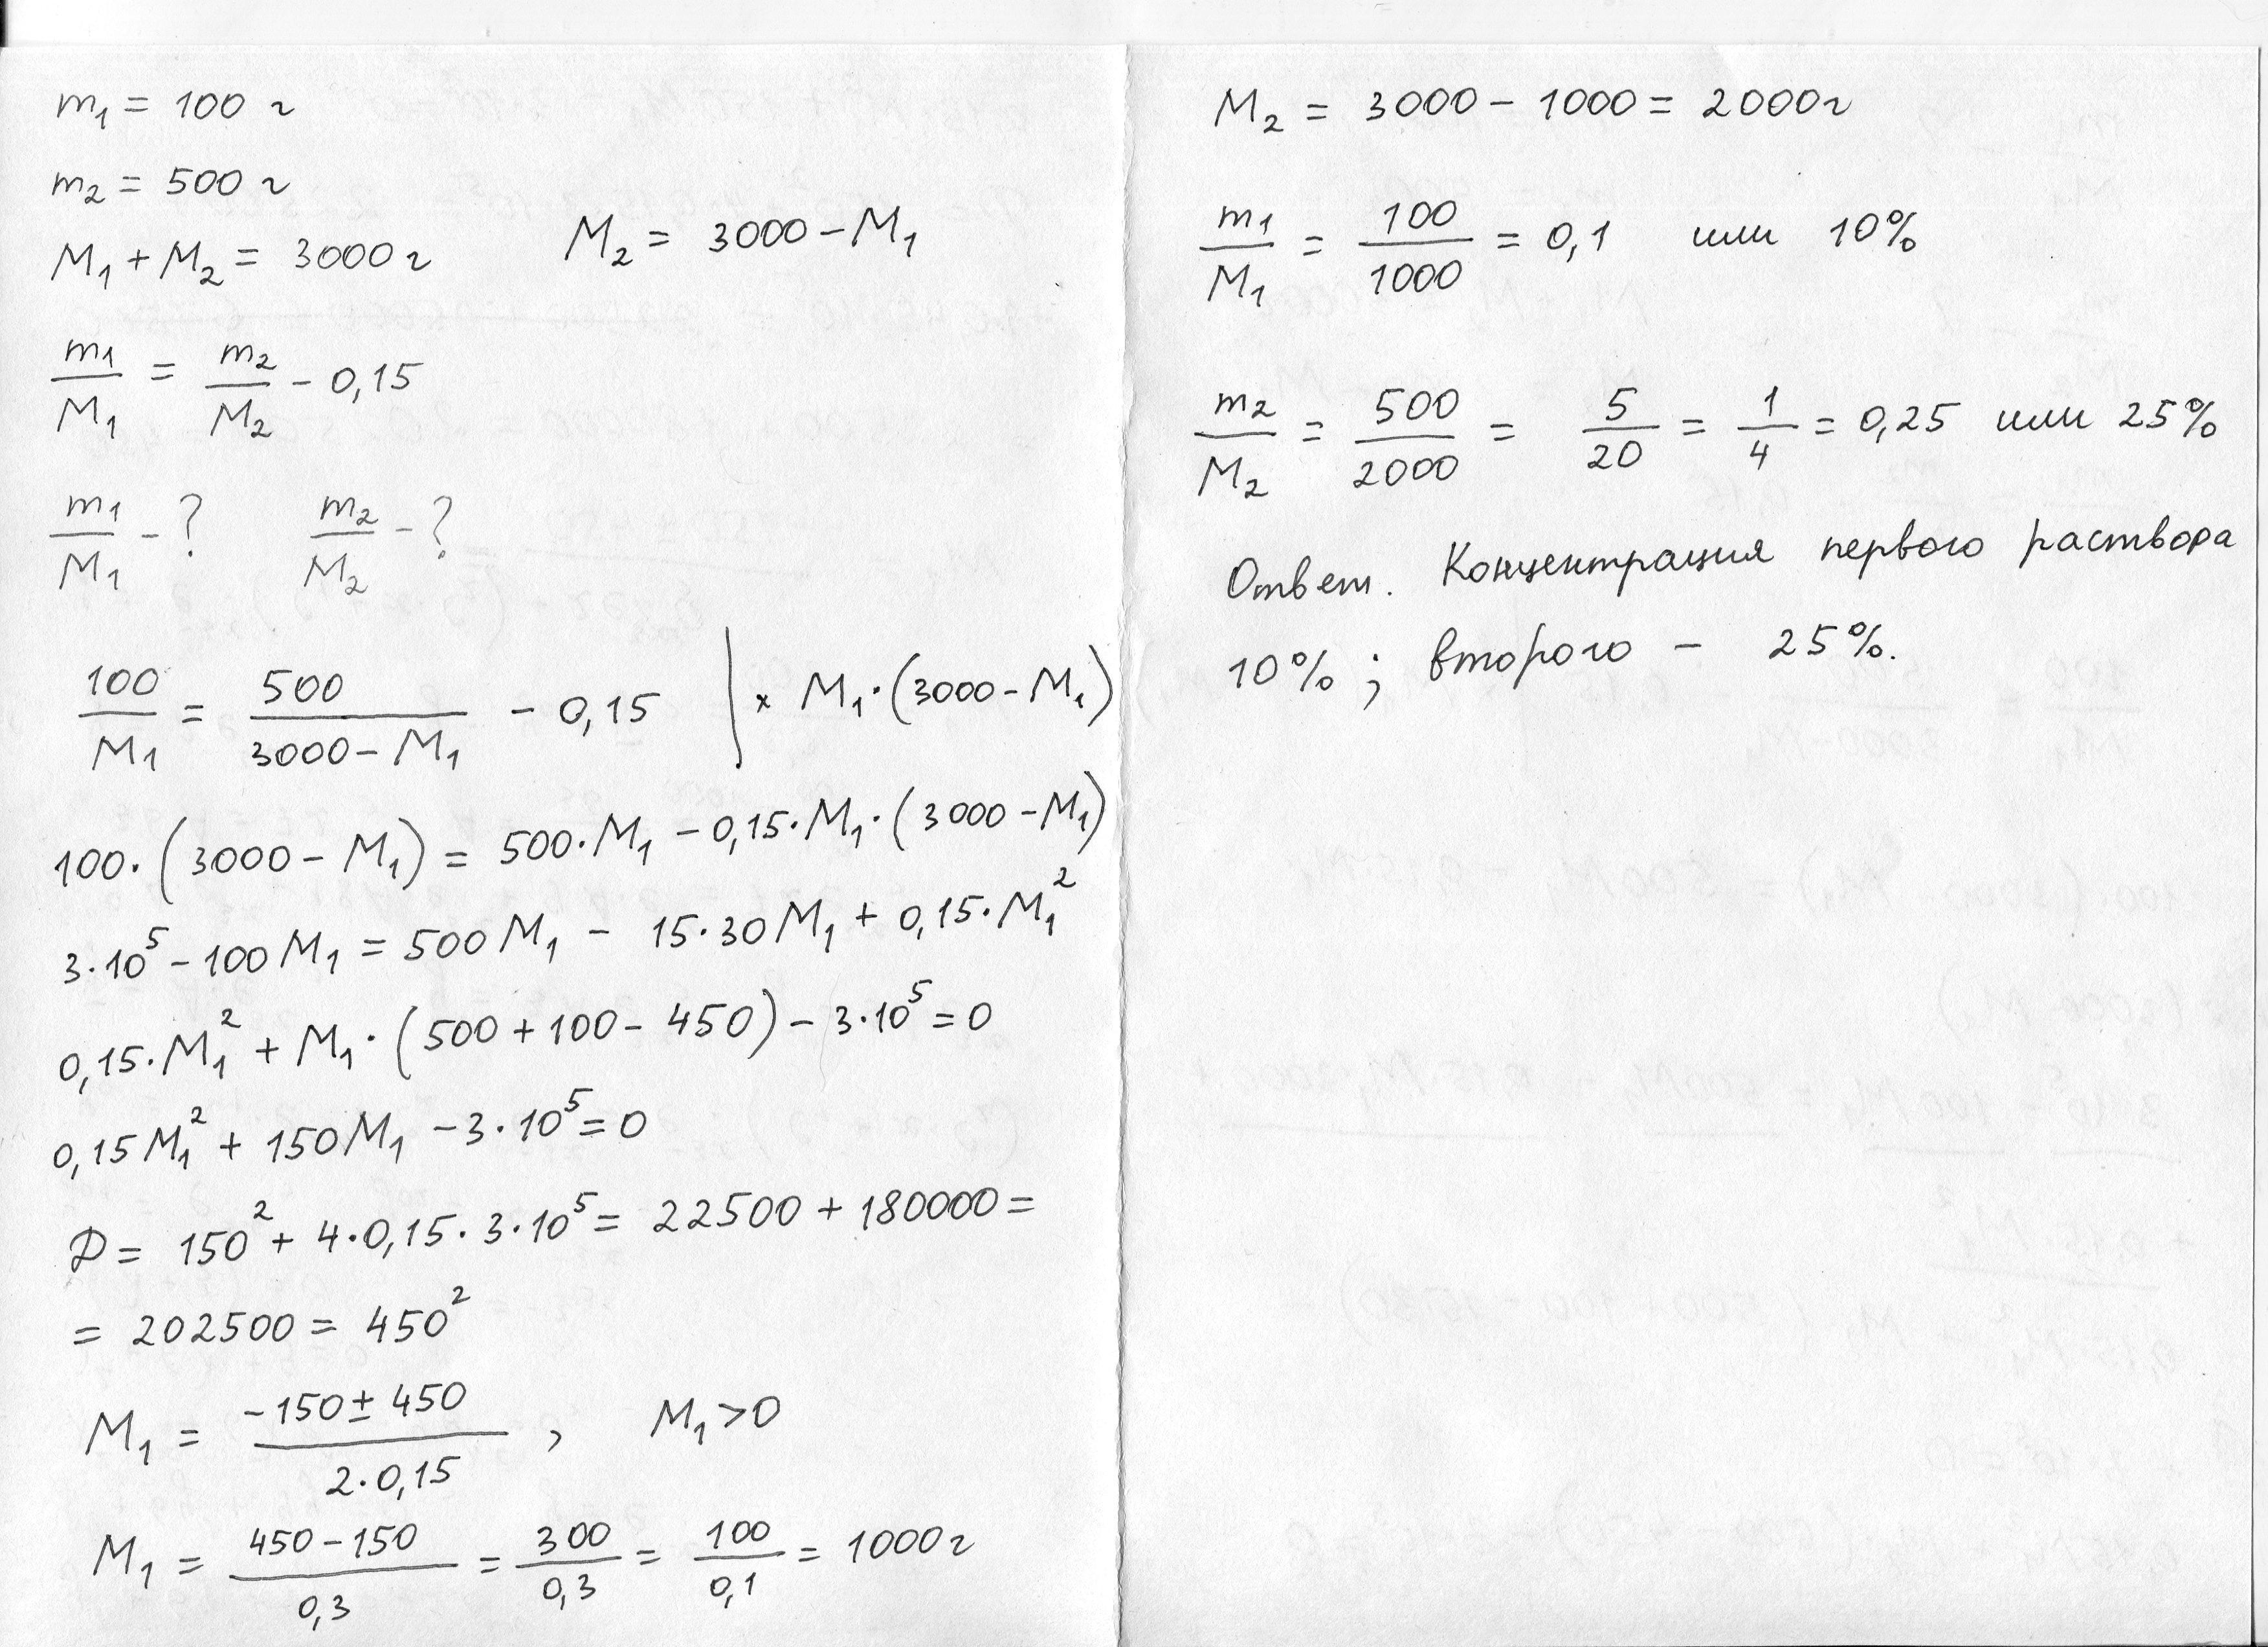 m₁ = 100 г
m₂ = 500 г
M₁ + M₂ = 3000 г     M₂ = 3000 − M₁
m₁/M₁ = m₂/M₂ − 0,15
m₁/M₁ − ?   m₂/M₂ − ?
100/M₁ = 500/(3000 − M₁) − 0,15 | × M₁·(3000 − M₁)
100·(3000 − M₁) = 500·M₁ − 0,15·M₁·(3000 − M₁)
3·10⁵ − 100M₁ = 500M₁ − 15·30M₁ + 0,15·M₁²
0,15·M₁² + M₁·(500 + 100 − 450) − 3·10⁵ = 0
0,15M₁² + 150M₁ − 3·10⁵ = 0
D = 150² + 4·0,15·3·10⁵ = 22500 + 180000 =
= 202500 = 450²
M₁ = (−150 ± 450)/(2·0,15) , M₁ > 0
M₁ = (450 − 150)/0,3 = 300/0,3 = 100/0,1 = 1000 г
M₂ = 3000 − 1000 = 2000 г
m₁/M₁ = 100/1000 = 0,1 или 10%
m₂/M₂ = 500/2000 = 5/20 = 1/4 = 0,25 или 25%
Ответ. Концентрация первого раствора
10% ; второго − 25%.